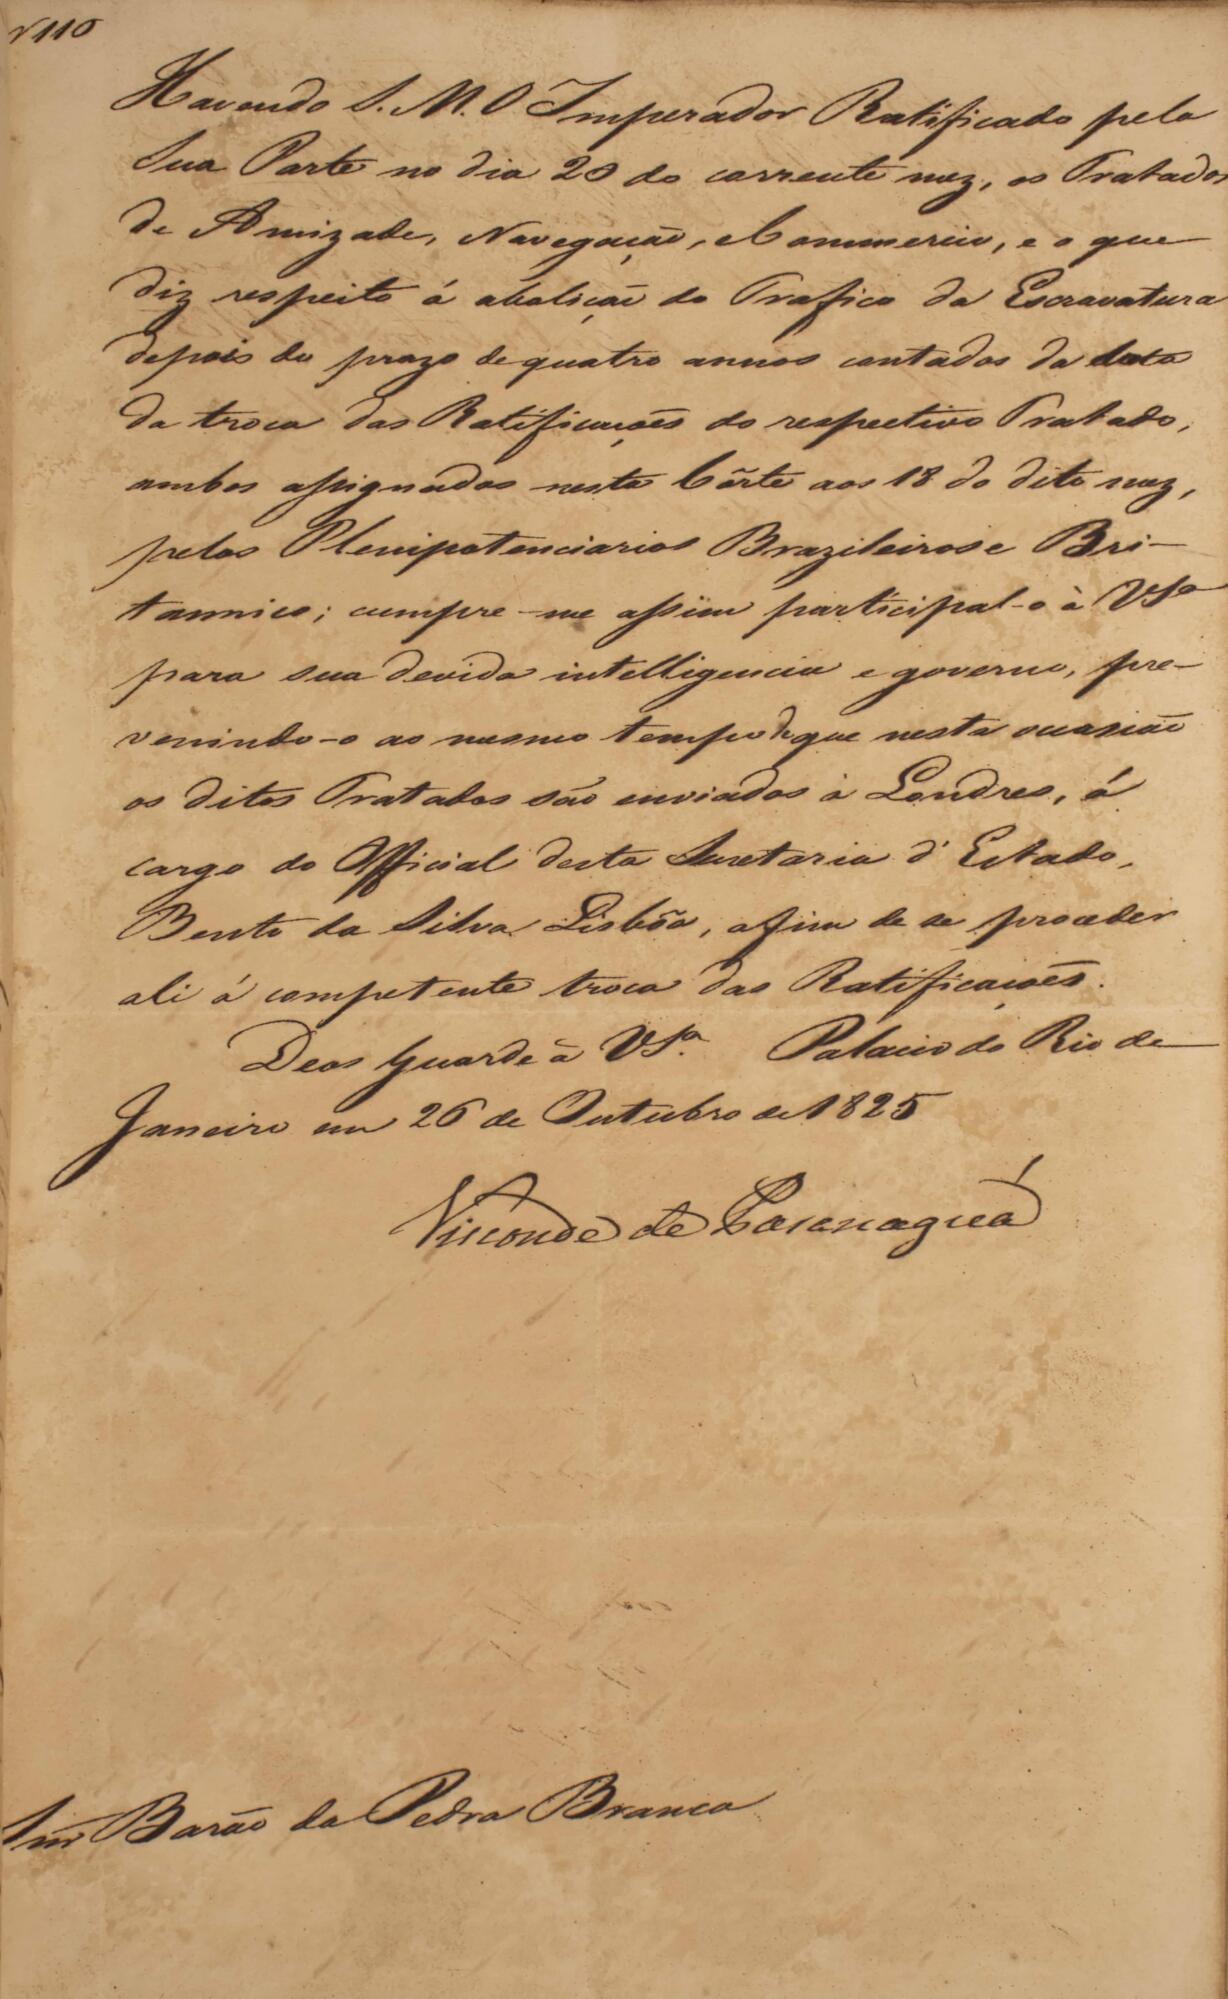 N 110
Havendo S. M. O Imperador Ratificado pela
Sua Parte no dia 20 do corrente mez, os Tratados
de Amizade, Navegação, e Commercio, e o que
diz respeito á abolição do Trafico da Escravatura
depois do prazo de quatro annos contados da data
da troca das Ratificações do respectivo Tratado,
ambos assignados nesta Côrte aos 18 do dito mez,
pelos Plenipotenciarios Brazileiros e Bri-
tannico; cumpre-me assim participal-o à VSª
para sua devida intelligencia e governo, pre-
venindo-o ao mesmo tempo de que nesta occasião
os ditos Tratados são enviados à Londres, á
cargo do Official desta Secretaria d'Estado,
Bento da Silva Lisbôa, afim de se proceder
ali á competente troca das Ratificações.
Deos Guarde à VSª. Palacio do Rio de
Janeiro em 26 de Outubro de 1825
Visconde de Paranaguá
Snr Barão da Pedra Branca